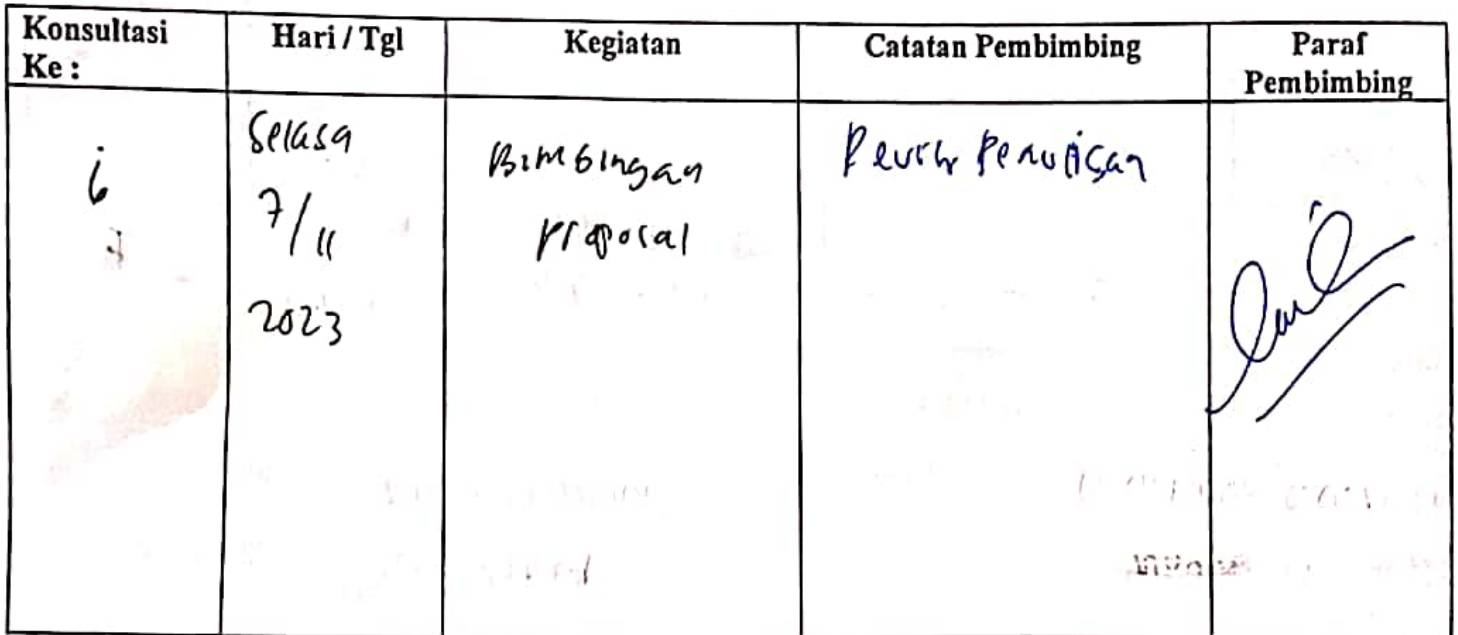 Konsultasi Ke :
Hari / Tgl
Kegiatan
Catatan Pembimbing
Paraf Pembimbing
Selasa
7/11
2023
Bimbingan
proposal
Penulisan